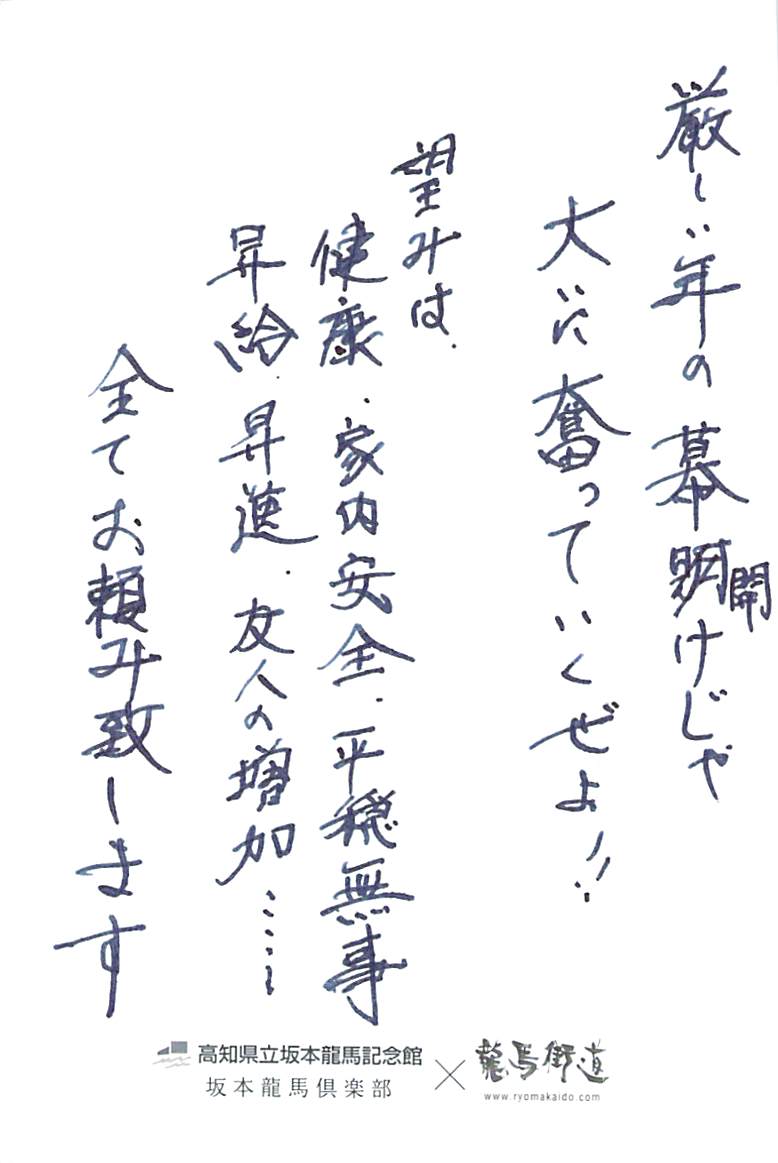 厳しい年の幕開けじゃ
大いに奮っていくぜよ!!
望みは、
健康、家内安全、平穏無事
昇給、昇進、友人の増加……
全てお頼み致します
高知県立坂本龍馬記念館
坂本龍馬倶楽部
×
龍馬街道
www.ryomakaido.com